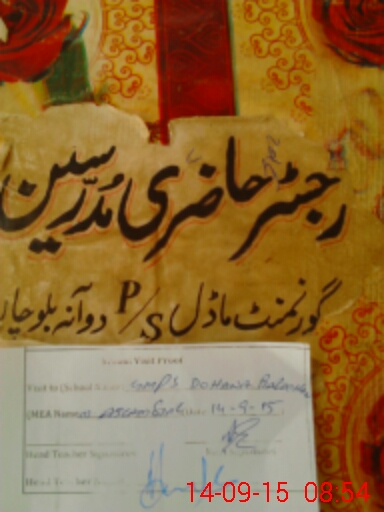 رجسٹر حاضری مدرسین
گورنمنٹ ماڈل P/S دوآنہ بلوچاں
School Visit Proof
Visit to (School Name) GMPS DOHANA
(MEA Name) Date 14-9-15
Head Teacher Signatures
Head Teacher
14-09-15 08:54